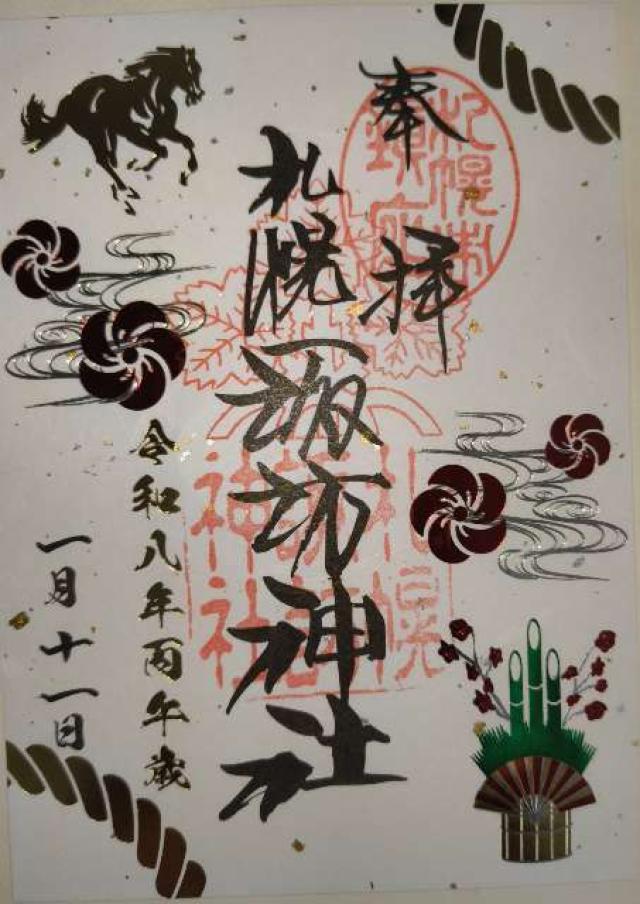 奉拝
札幌諏訪神社
令和八年丙午歳
一月十一日
札幌市
鎮座
札幌
諏訪
神社